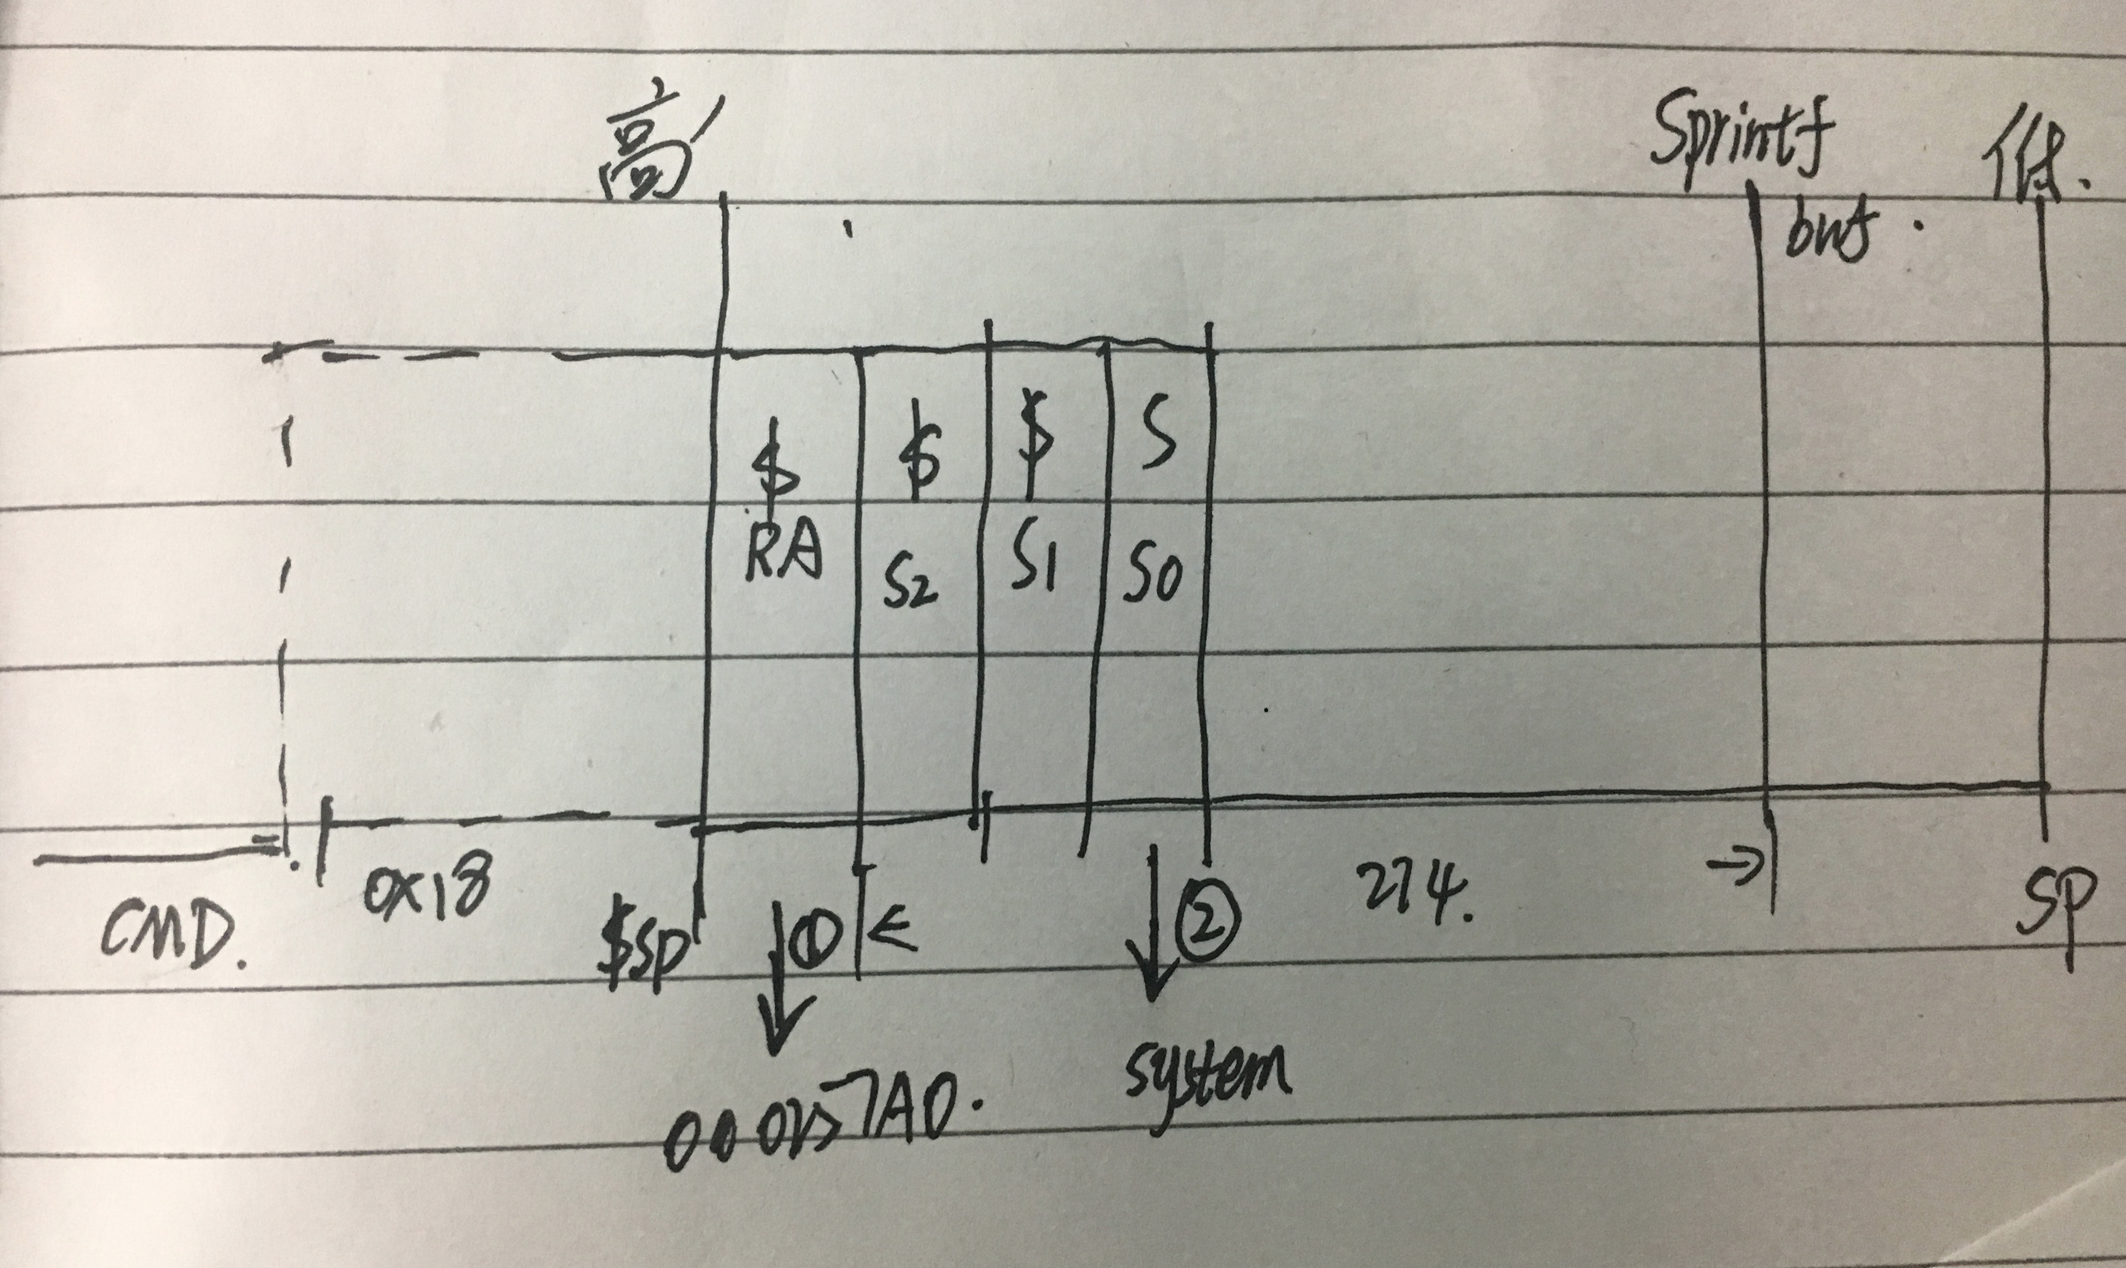 高 Sprintf 低.
buf.
$ $ $ S
RA S2 S1 S0
CMD. 0x18 $SP ① < ② 274. → SP
000257A0. system